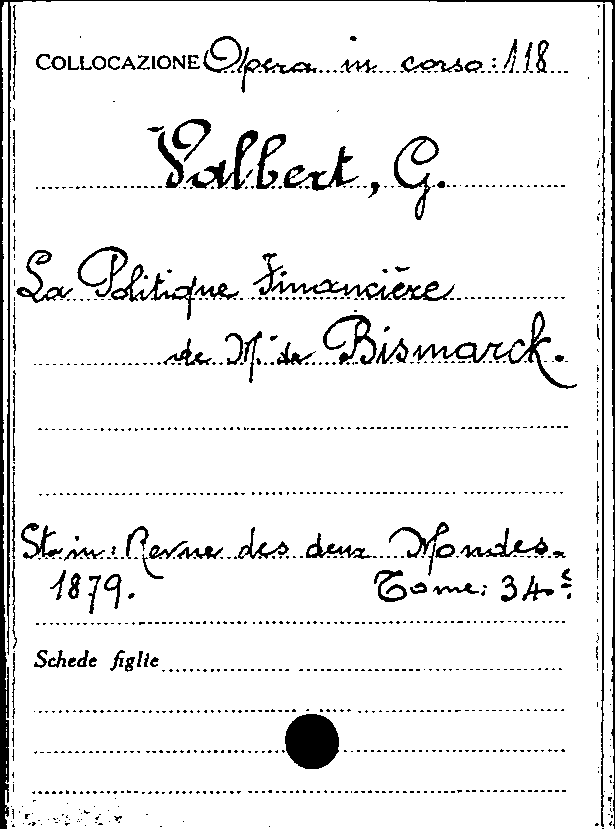 COLLOCAZIONE Opera in corso: 118
Valbert, G.
La Politique Financière
de M. de Bismarck.
St. in: Revue des deux Mondes.
1879. Tome: 34.e
Schede figlie